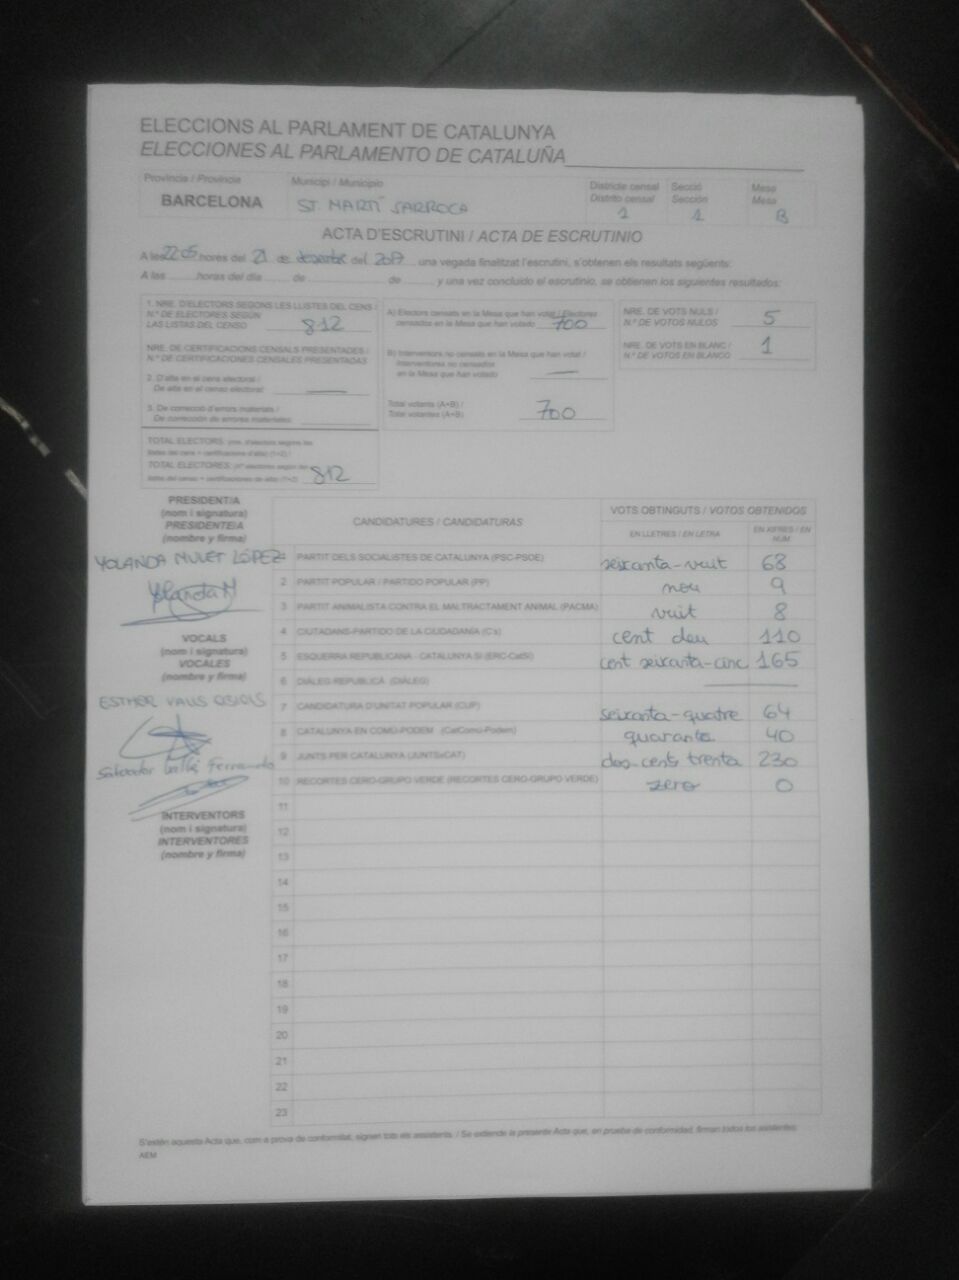 ELECCIONS AL PARLAMENT DE CATALUNYA
ELECCIONES AL PARLAMENTO DE CATALUÑA
Província / Provincia
BARCELONA
Municipi / Municipio
ST. MARTÍ SARROCA
Districte censal
Distrito censal
1
Secció
Sección
1
Mesa
Mesa
B
ACTA D'ESCRUTINI / ACTA DE ESCRUTINIO
A les 22:05 hores del 21 de desembre del 2017 una vegada finalitzat l'escrutini, s'obtenen els resultats següents:
A las ........ horas del día ........ de ........ de ........ y una vez concluido el escrutinio, se obtienen los siguientes resultados:
1. NRE. D'ELECTORS SEGONS LES LLISTES DEL CENS /
N.º DE ELECTORES SEGÚN
LAS LISTAS DEL CENSO 812
NRE. DE CERTIFICACIONS CENSALS PRESENTADES /
N.º DE CERTIFICACIONES CENSALES PRESENTADAS
2. D'alta en el cens electoral /
De alta en el censo electoral: —
3. De correcció d'errors materials /
De corrección de errores materiales:
TOTAL ELECTORS: (nre. d'electors segons les
llistes del cens + certificacions d'alta) (1+2) /
TOTAL ELECTORES: (nº electores según las
listas del censo + certificaciones de alta) (1+2) 812
A) Electors censats en la Mesa que han votat / Electores
censados en la Mesa que han votado 700
B) Interventors no censats en la Mesa que han votat /
Interventores no censados
en la Mesa que han votado —
Total votants (A+B) /
Total votantes (A+B) 700
NRE. DE VOTS NULS /
N.º DE VOTOS NULOS 5
NRE. DE VOTS EN BLANC /
N.º DE VOTOS EN BLANCO 1
PRESIDENT/A
(nom i signatura)
PRESIDENTE/A
(nombre y firma)
YOLANDA MULET LÓPEZ
Yolanda M
VOCALS
(nom i signatura)
VOCALES
(nombre y firma)
ESTHER VALLS
Salvador Ferrando
INTERVENTORS
(nom i signatura)
INTERVENTORES
(nombre y firma)
CANDIDATURES / CANDIDATURAS
VOTS OBTINGUTS / VOTOS OBTENIDOS
EN LLETRES / EN LETRA
EN XIFRES / EN NUM
1 PARTIT DELS SOCIALISTES DE CATALUNYA (PSC-PSOE) seixanta-vuit 68
2 PARTIT POPULAR / PARTIDO POPULAR (PP) nou 9
3 PARTIT ANIMALISTA CONTRA EL MALTRACTAMENT ANIMAL (PACMA) vuit 8
4 CIUTADANS-PARTIDO DE LA CIUDADANÍA (C's) cent deu 110
5 ESQUERRA REPUBLICANA - CATALUNYA SÍ (ERC-CatSí) cent seixanta-cinc 165
6 DIÀLEG REPUBLICÀ (DIÀLEG) —
7 CANDIDATURA D'UNITAT POPULAR (CUP) seixanta-quatre 64
8 CATALUNYA EN COMÚ-PODEM (CatComú-Podem) quaranta 40
9 JUNTS PER CATALUNYA (JUNTSxCAT) dos-cents trenta 230
10 RECORTES CERO-GRUPO VERDE (RECORTES CERO-GRUPO VERDE) zero 0
11
12
13
14
15
16
17
18
19
20
21
22
23
S'estén aquesta Acta que, com a prova de conformitat, signen tots els assistents. / Se extiende la presente Acta que, en prueba de conformidad, firman todos los asistentes.
AEM